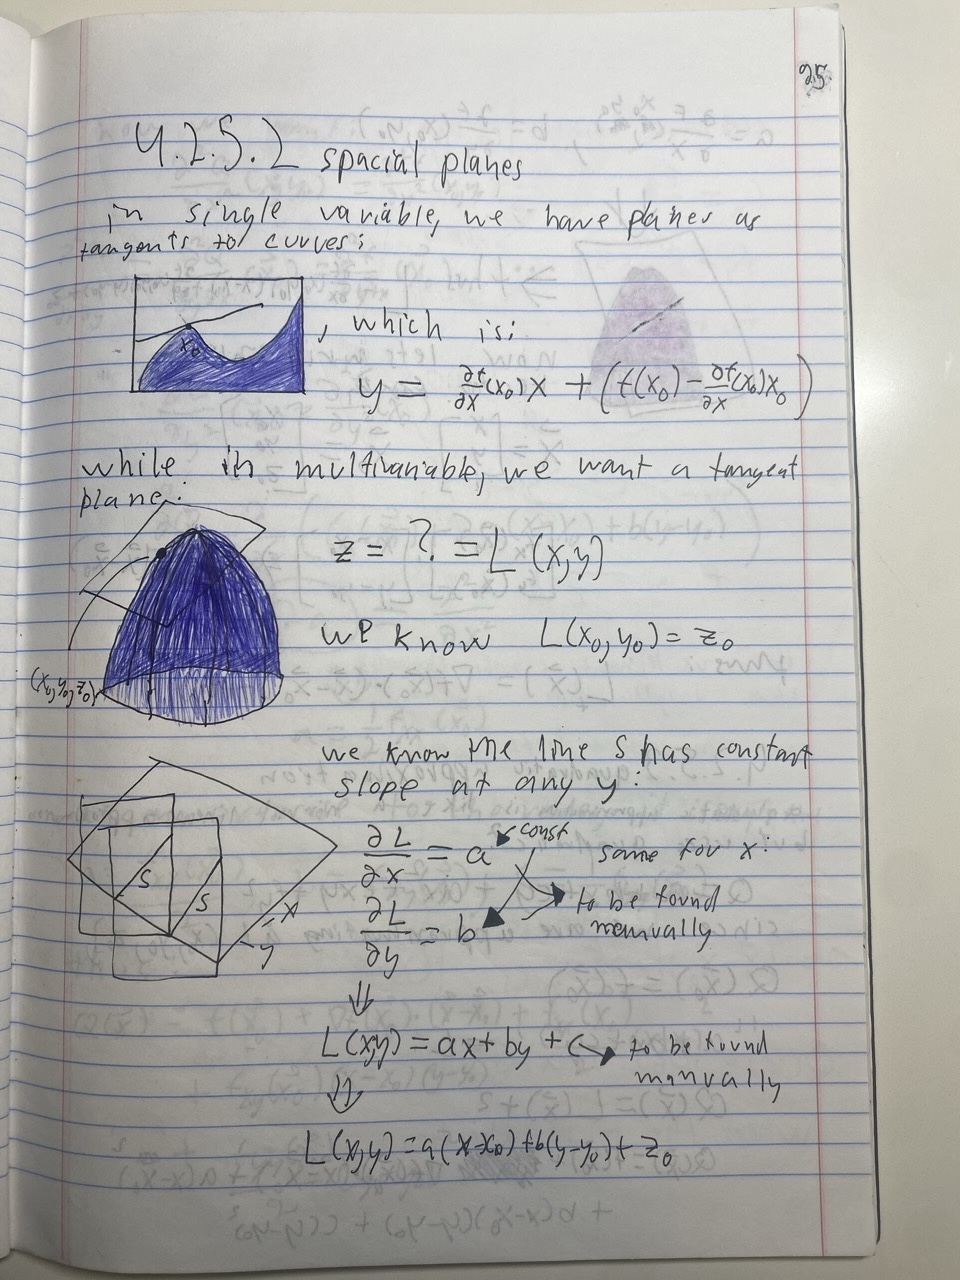 25
4.2.5.2 spacial planes
in single variable, we have planes as
tangents to curves:
x₀
, which is:
y = ∂f/∂x(x₀)x + (f(x₀) - ∂f/∂x(x₀)x₀)
while in multivariable, we want a tangent
plane:
z = ? = L(x,y)
we know L(x₀,y₀) = z₀
(x₀,y₀,z₀)
we know the line S has constant
slope at any y:
∂L/∂x = a
const
same for x:
∂L/∂y = b
to be found
manually
S
S
x
y
⇓
L(x,y) = ax + by + c
to be found
manually
⇓
L(x,y) = a(x-x₀) + b(y-y₀) + z₀